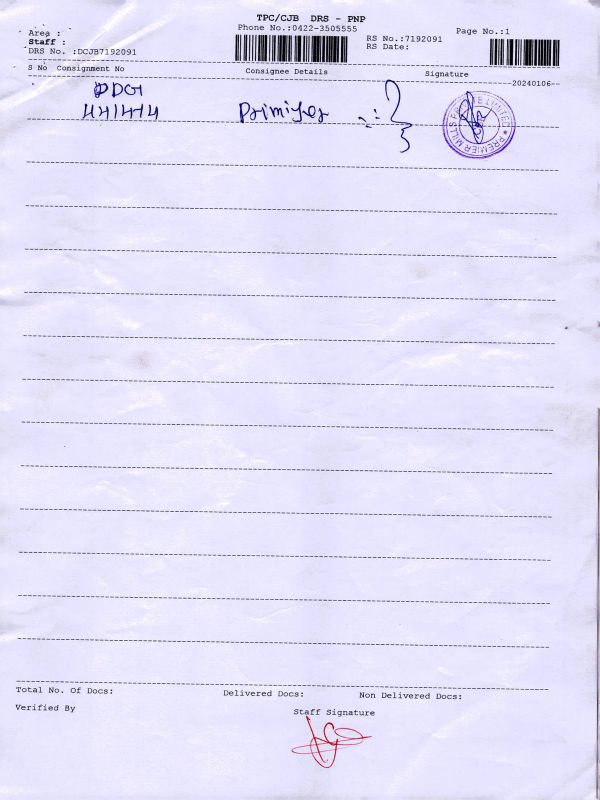 TPC/CJB DRS - PNP
Phone No.:0422-3505555
Page No.:1
Area :
Staff :
DRS No. :DCJB7192091
RS No.:7192091
RS Date:
S No Consignment No Consignee Details Signature
20240106
PREMIER MILLS LIMITED
Total No. Of Docs: Delivered Docs: Non Delivered Docs:
Verified By
Staff Signature